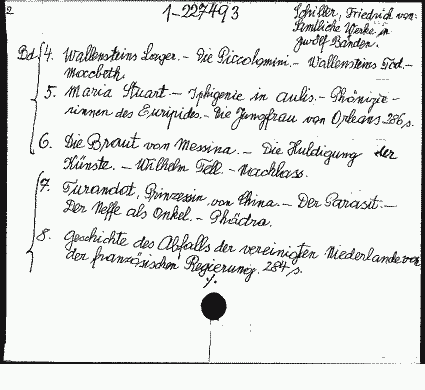 2
1-227493
Schiller, Friedrich von:
Sämtliche Werke in
zwölf Bänden.
Bd. 4. Wallensteins Lager. - Die Piccolomini. - Wallensteins Tod. -
Macbeth.
5. Maria Stuart. - Iphigenie in Aulis. - Phönizie-
rinnen des Euripides. - Die Jungfrau von Orleans. 286 s.
6. Die Braut von Messina. - Die Huldigung der
Künste. - Wilhelm Tell. - Nachlass.
7. Turandot, Prinzessin von China. - Der Parasit. -
Der Neffe als Onkel. - Phädra.
8. Geschichte des Abfalls der vereinigten Niederlande von
der französischen Regierung. 284 s.
./.